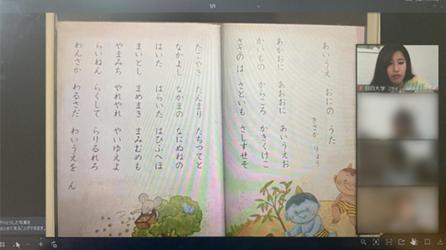 あいうえ おにの うた
きさか りょう
あかおに あおおに あいうえお
かいもの からころ かきくけこ
ささのは さといも さしすせそ
たこやき たんまり たちつてと
なかよし なかまの なにぬねの
はいた はらいた はひふへほ
まいとし まめまき まみむめも
やまみち やれやれ やいゆえよ
らいねん らくして らりるれろ
わんさか わるさだ わいうえを ん